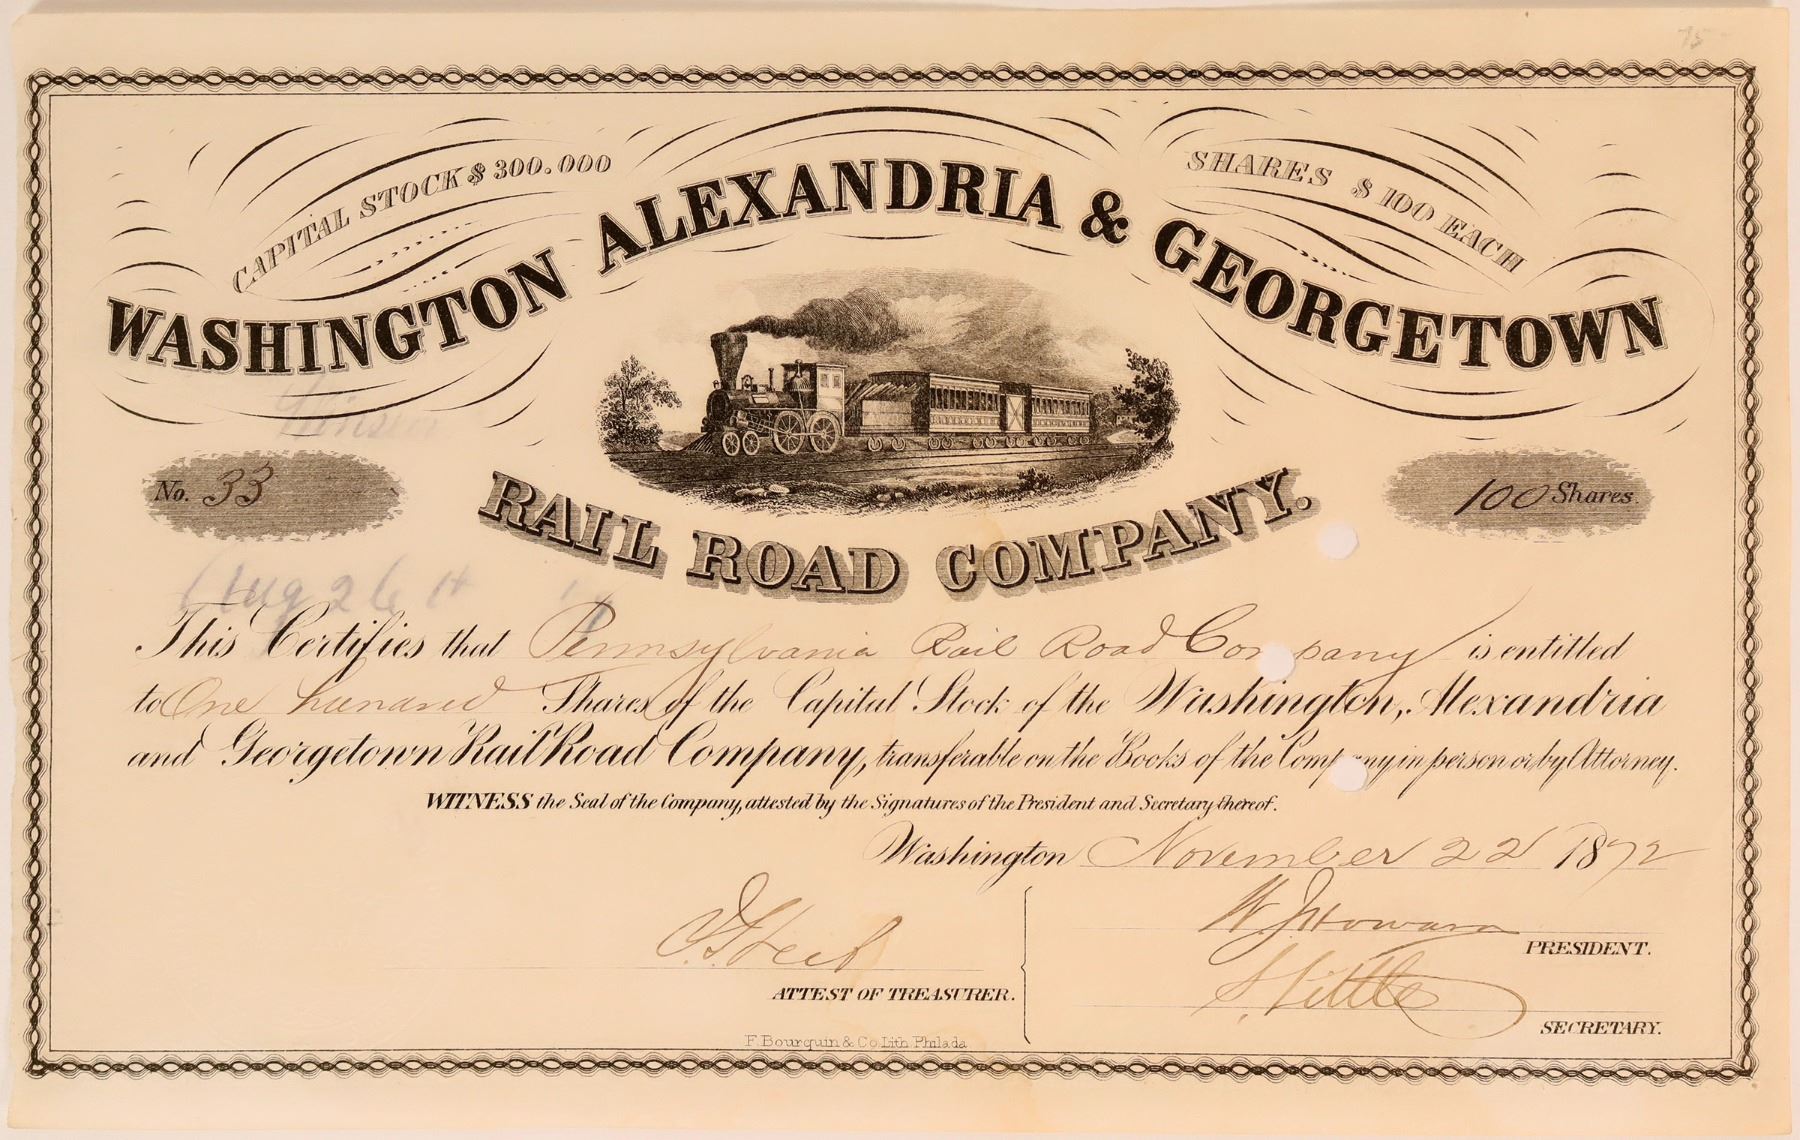 75
CAPITAL STOCK $ 300.000
SHARES $ 100 EACH
WASHINGTON ALEXANDRIA & GEORGETOWN
RAIL ROAD COMPANY.
No. 33
100 Shares.
Aug 26
This Certifies that Pennsylvania Rail Road Company is entitled
to One hundred Shares of the Capital Stock of the Washington, Alexandria
and Georgetown Rail Road Company, transferable on the Books of the Company in person or by Attorney.
WITNESS the Seal of the Company, attested by the Signatures of the President and Secretary thereof.
Washington November 22 1872
W. J. Howard
PRESIDENT.
ATTEST OF TREASURER.
S. Little
SECRETARY.
F. Bourquin & Co. Lith. Philada.